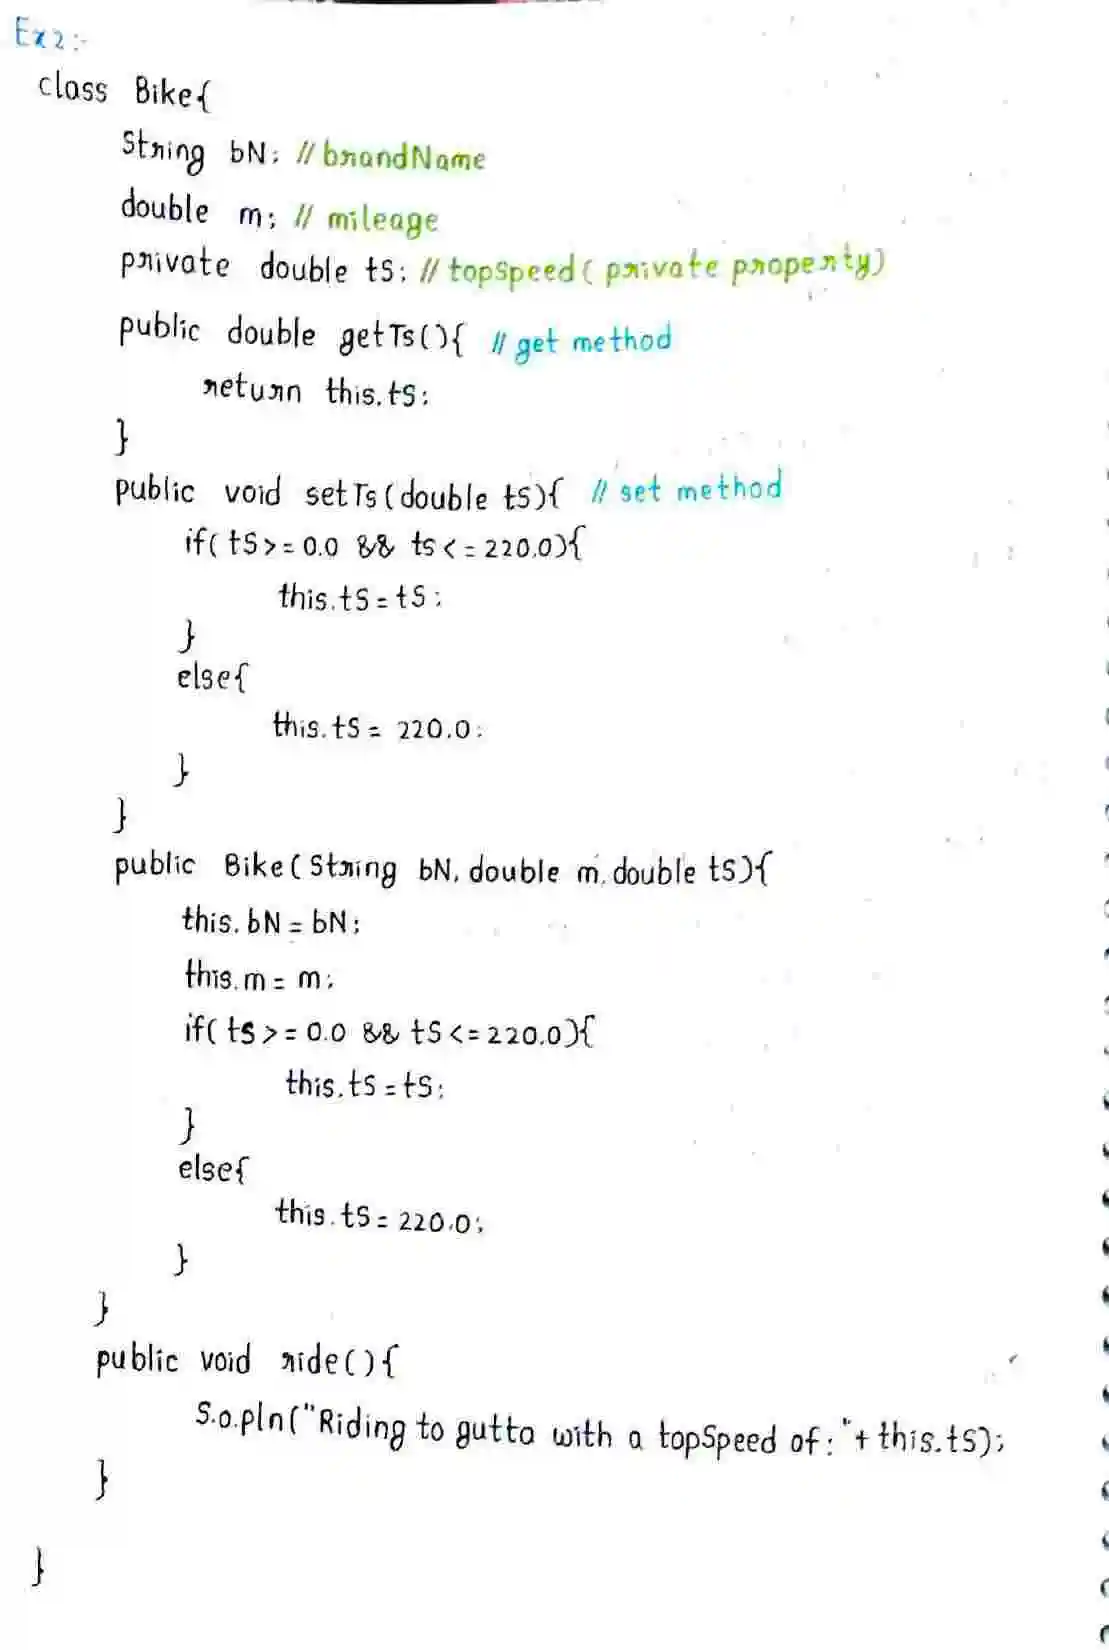 Ex2:-
class Bike{
String bN; // brandName
double m; // mileage
private double tS; // topSpeed (private property)
public double getTs(){ // get method
return this.tS;
}
public void setTs(double tS){ // set method
if(tS>=0.0 && ts<=220.0){
this.tS=tS;
}
else{
this.tS = 220.0;
}
}
public Bike(String bN, double m, double tS){
this.bN = bN;
this.m = m;
if(tS>=0.0 && tS<=220.0){
this.tS=tS;
}
else{
this.tS=220.0;
}
}
public void ride(){
S.o.pln("Riding to gutta with a topSpeed of: "+ this.tS);
}
}